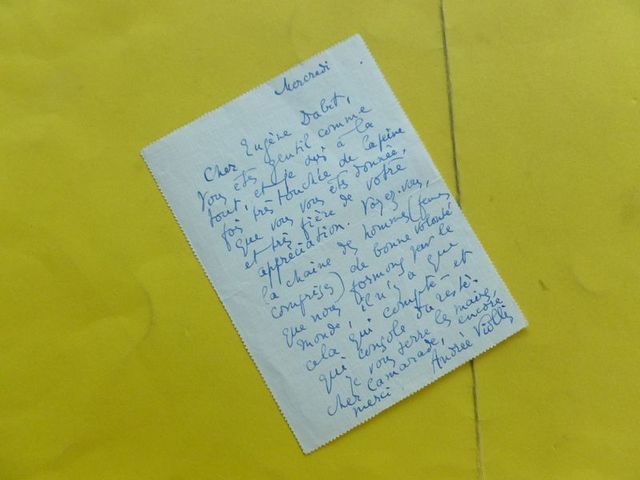 Mercredi
Cher Eugène Dabit,
Vous êtes gentil comme
tout, et je suis à la
fois très touchée de la peine
que vous vous êtes donnée,
et très fière de votre
appréciation. Voyez-vous,
la chaîne des hommes (femmes
comprises) de bonne volonté
que nous formons par le
monde, il n'y a que
cela qui compte - et
qui console du reste.
Je vous serre les mains,
cher Camarade, encore
merci Andrée Viollis